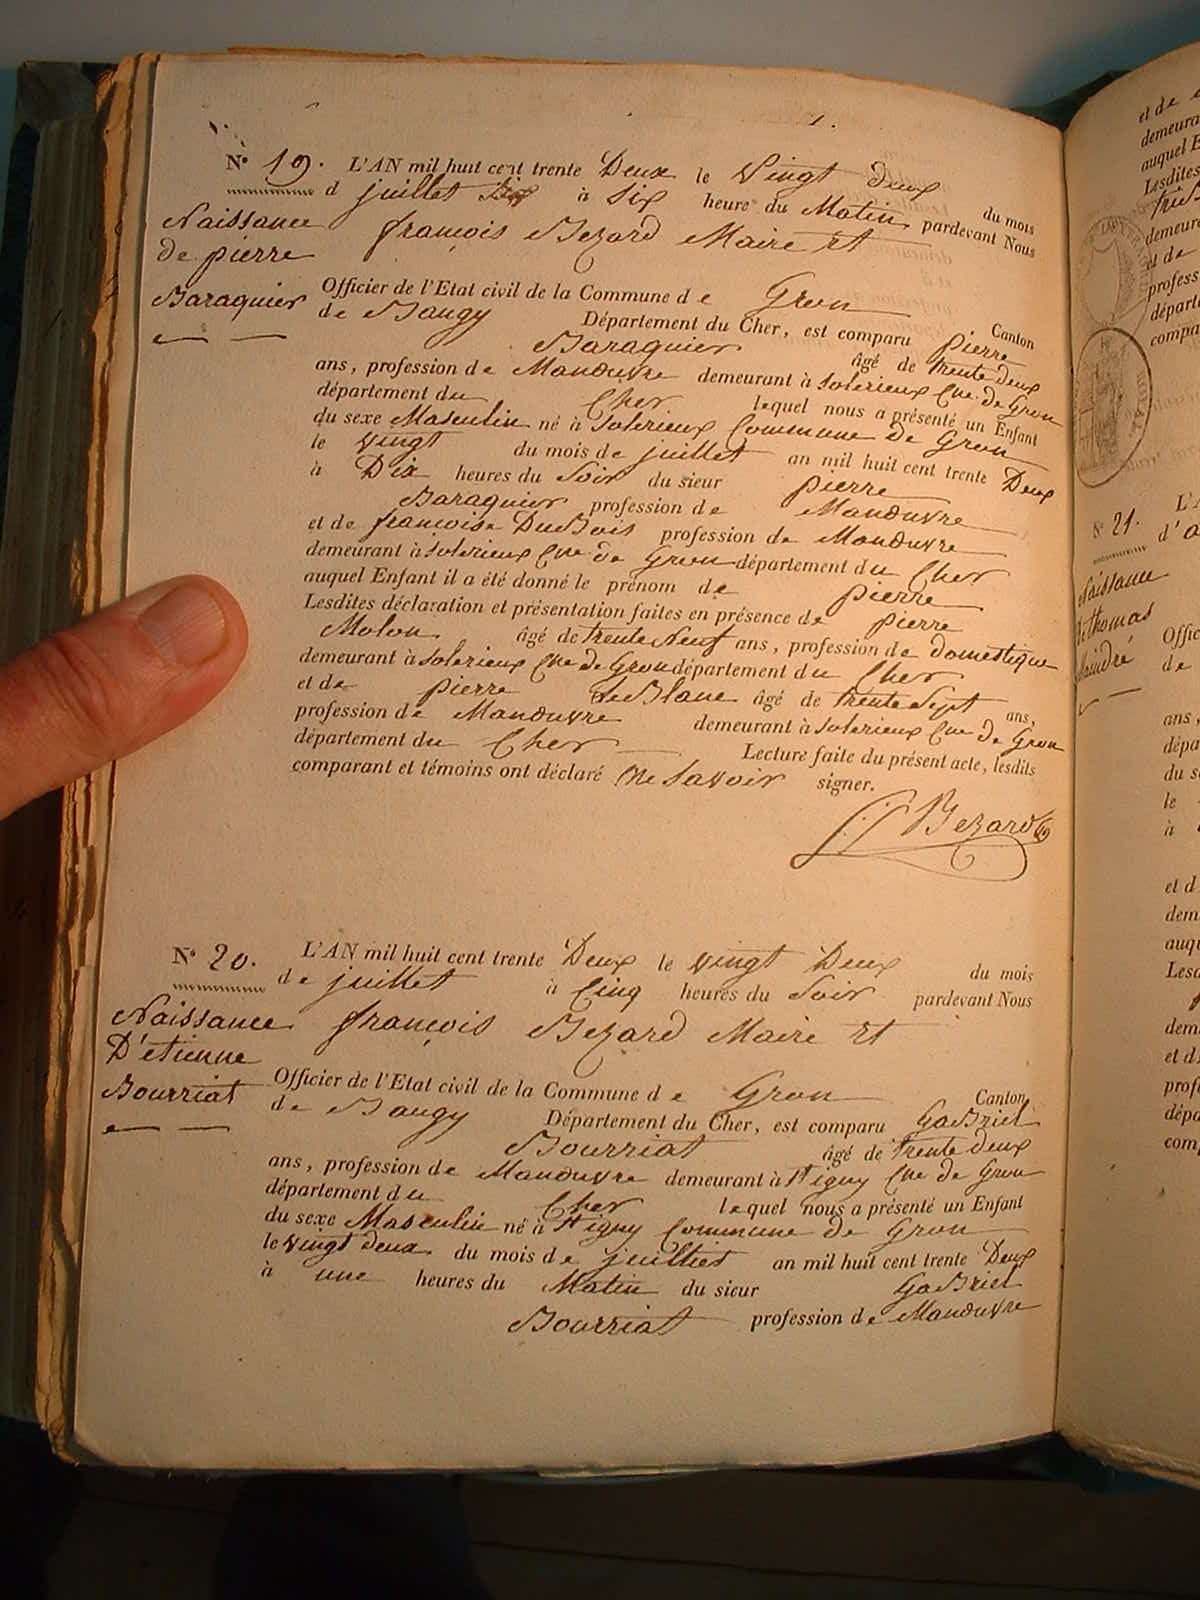 N° 19. L'AN mil huit cent trente Deux le Vingt deux du mois
d juillet à Six heure du Matin pardevant Nous
Naissance de pierre Baraquier
françois Bezard Maire et
Officier de l'Etat civil de la Commune de Gron Canton
de Baugy Département du Cher, est comparu pierre
Baraquier âgé de trente deux
ans, profession de Manœuvre demeurant à Solerieux Cne de Gron
département du Cher lequel nous a présenté un Enfant
du sexe Masculin né à Solerieux Commune de Gron
le vingt du mois de juillet an mil huit cent trente Deux
à Dix heures du Soir du sieur pierre
Baraquier profession de Manœuvre
et de françoise DuBois profession de Manœuvre
demeurant à Solerieux Cne de Gron département du Cher
auquel Enfant il a été donné le prénom de pierre
Lesdites déclaration et présentation faites en présence de pierre
Molon âgé de trente Neuf ans, profession de domestique
demeurant à Solerieux Cne de Gron département du Cher
et de pierre LeBlanc âgé de trente Sept ans,
profession de Manœuvre demeurant à Solerieux Cne de Gron
département du Cher Lecture faite du présent acte, lesdits
comparant et témoins ont déclaré Ne Savoir signer.
Bezard
N° 20. L'AN mil huit cent trente Deux le vingt Deux du mois
de juillet à Cinq heures du Soir pardevant Nous
Naissance D'étienne Bourriat
françois Bezard Maire et
Officier de l'Etat civil de la Commune de Gron Canton
de Baugy Département du Cher, est comparu GaBriel
Bourriat âgé de trente deux
ans, profession de Manœuvre demeurant à Tigny Cne de Gron
département du Cher lequel nous a présenté un Enfant
du sexe Masculin né à Tigny Commune de Gron
le vingt deux du mois de juilliet an mil huit cent trente Deux
à une heures du Matin du sieur GaBriel
Bourriat profession de Manœuvre
N° 21.
Naissance
de thomas